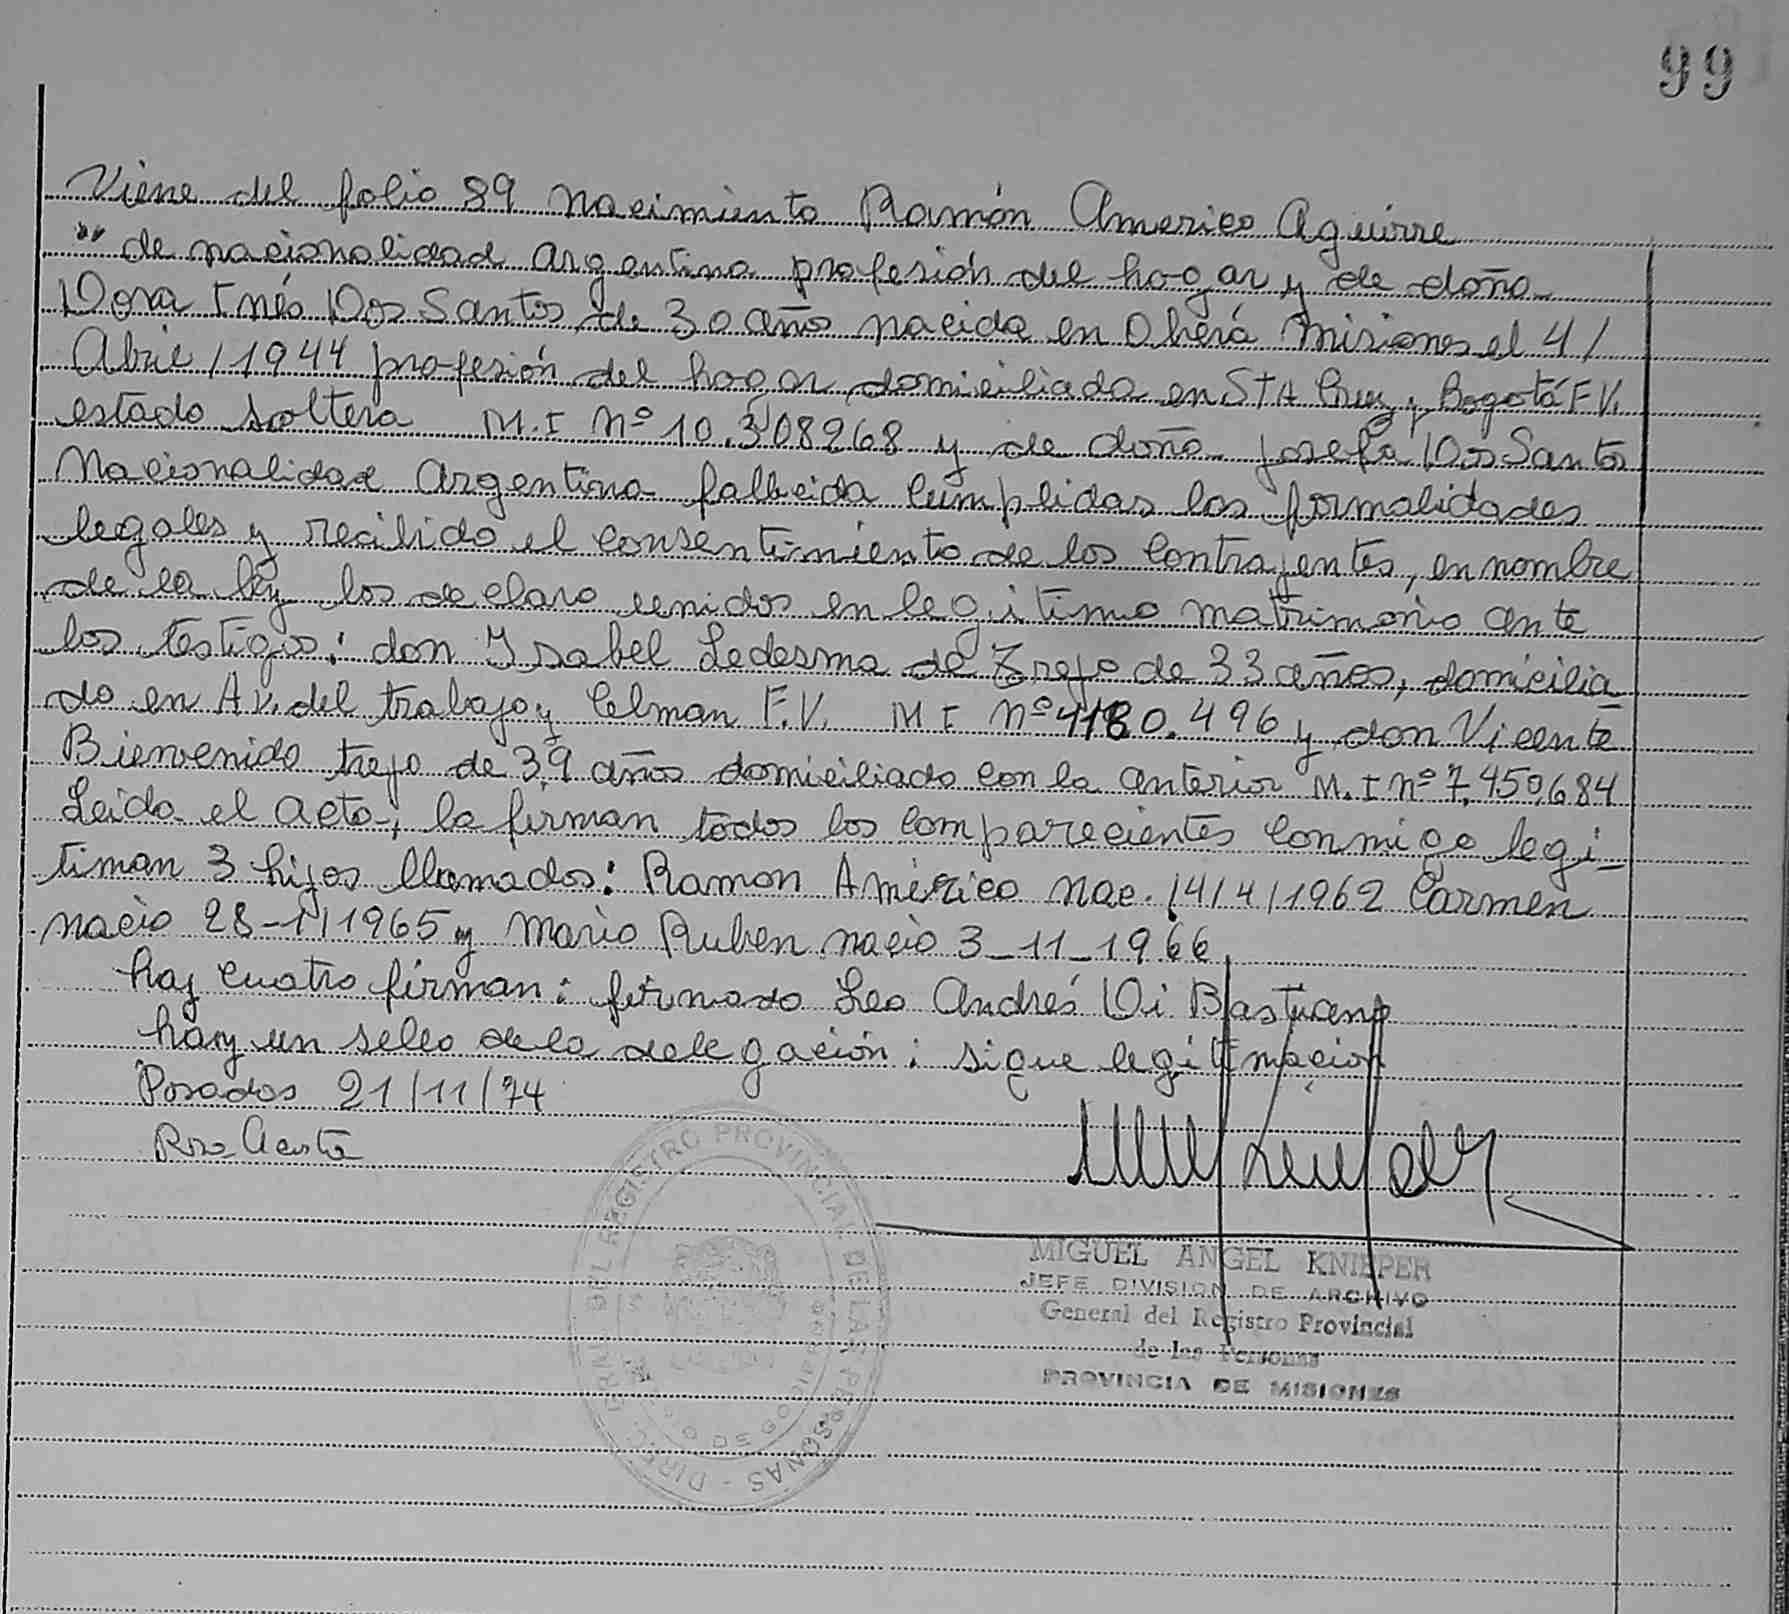 99
Viene del folio 89 nacimiento Ramón Americo Aguirre
"" de nacionalidad argentina profesión del hogar y de doña
Dora Inés Dos Santos de 30 años nacida en Oberá Misiones el 4/
Abril/1944 profesión del hogar domiciliada en STA Cruz y Bogotá F.V.
estado soltera M.I nº 10.308268 y de doña Josefa Dos Santos
Nacionalidad argentina fallecida cumplidas las formalidades
legales y recibido el consentimiento de los contrayentes, en nombre
de la ley los declaro unidos en legitimo matrimonio ante
los testigos: don Ysabel Ledesma de Trejo de 33 años, domicilia
do en Av. del trabajo y Celman F.V. M I nº 4180.496 y don Vicente
Bienvenido trejo de 39 años domiciliado con la anterior M.I nº 7,450,684
Leida el acta, la firman todos los comparecientes conmigo legi_
timan 3 hijos llamados: Ramon Américo nac. 14/4/1962 Carmen
nacio 28-1/1965 y Mario Ruben nacio 3_11_1966
hay cuatro firman: firmado Leo Andrés Di
hay un sello de la delegación: sigue legitimacion
Posadas 21/11/74
MIGUEL ANGEL KNIEPER
JEFE DIVISION DE ARCHIVO
General del Registro Provincial
de las Personas
PROVINCIA DE MISIONES
REGISTRO PROVINCIAL DE LAS PERSONAS